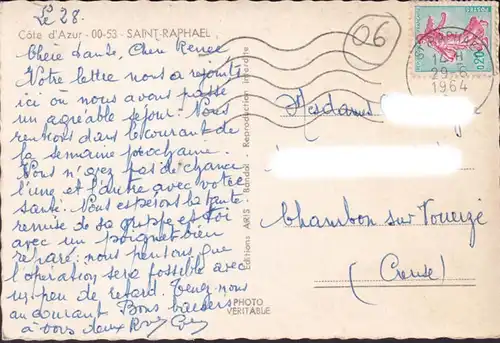 Le 28.
Côte d'Azur - 00-53 - SAINT-RAPHAEL
Chère tante, Chère Renée
Votre lettre nous a rejoints
ici où nous avons passé
un agréable séjour. Nous
rentrons dans le courant de
la semaine prochaine.
Vous n'avez pas de chance
l'une et l'autre avec votre
santé. Nous espérons la tante
remise de sa grippe et toi
avec un poignet bien
réparé; nous pensons que
l'opération sera possible avec
un peu de retard. Tenez-nous
au courant. Bons baisers
à vous deux
Editions ARIS - Bandol - Reproduction interdite
PHOTO
VERITABLE
06
POSTES
0,20
14 H
29-6
1964
Mesdames
Chambon sur Voueize
(Creuse)